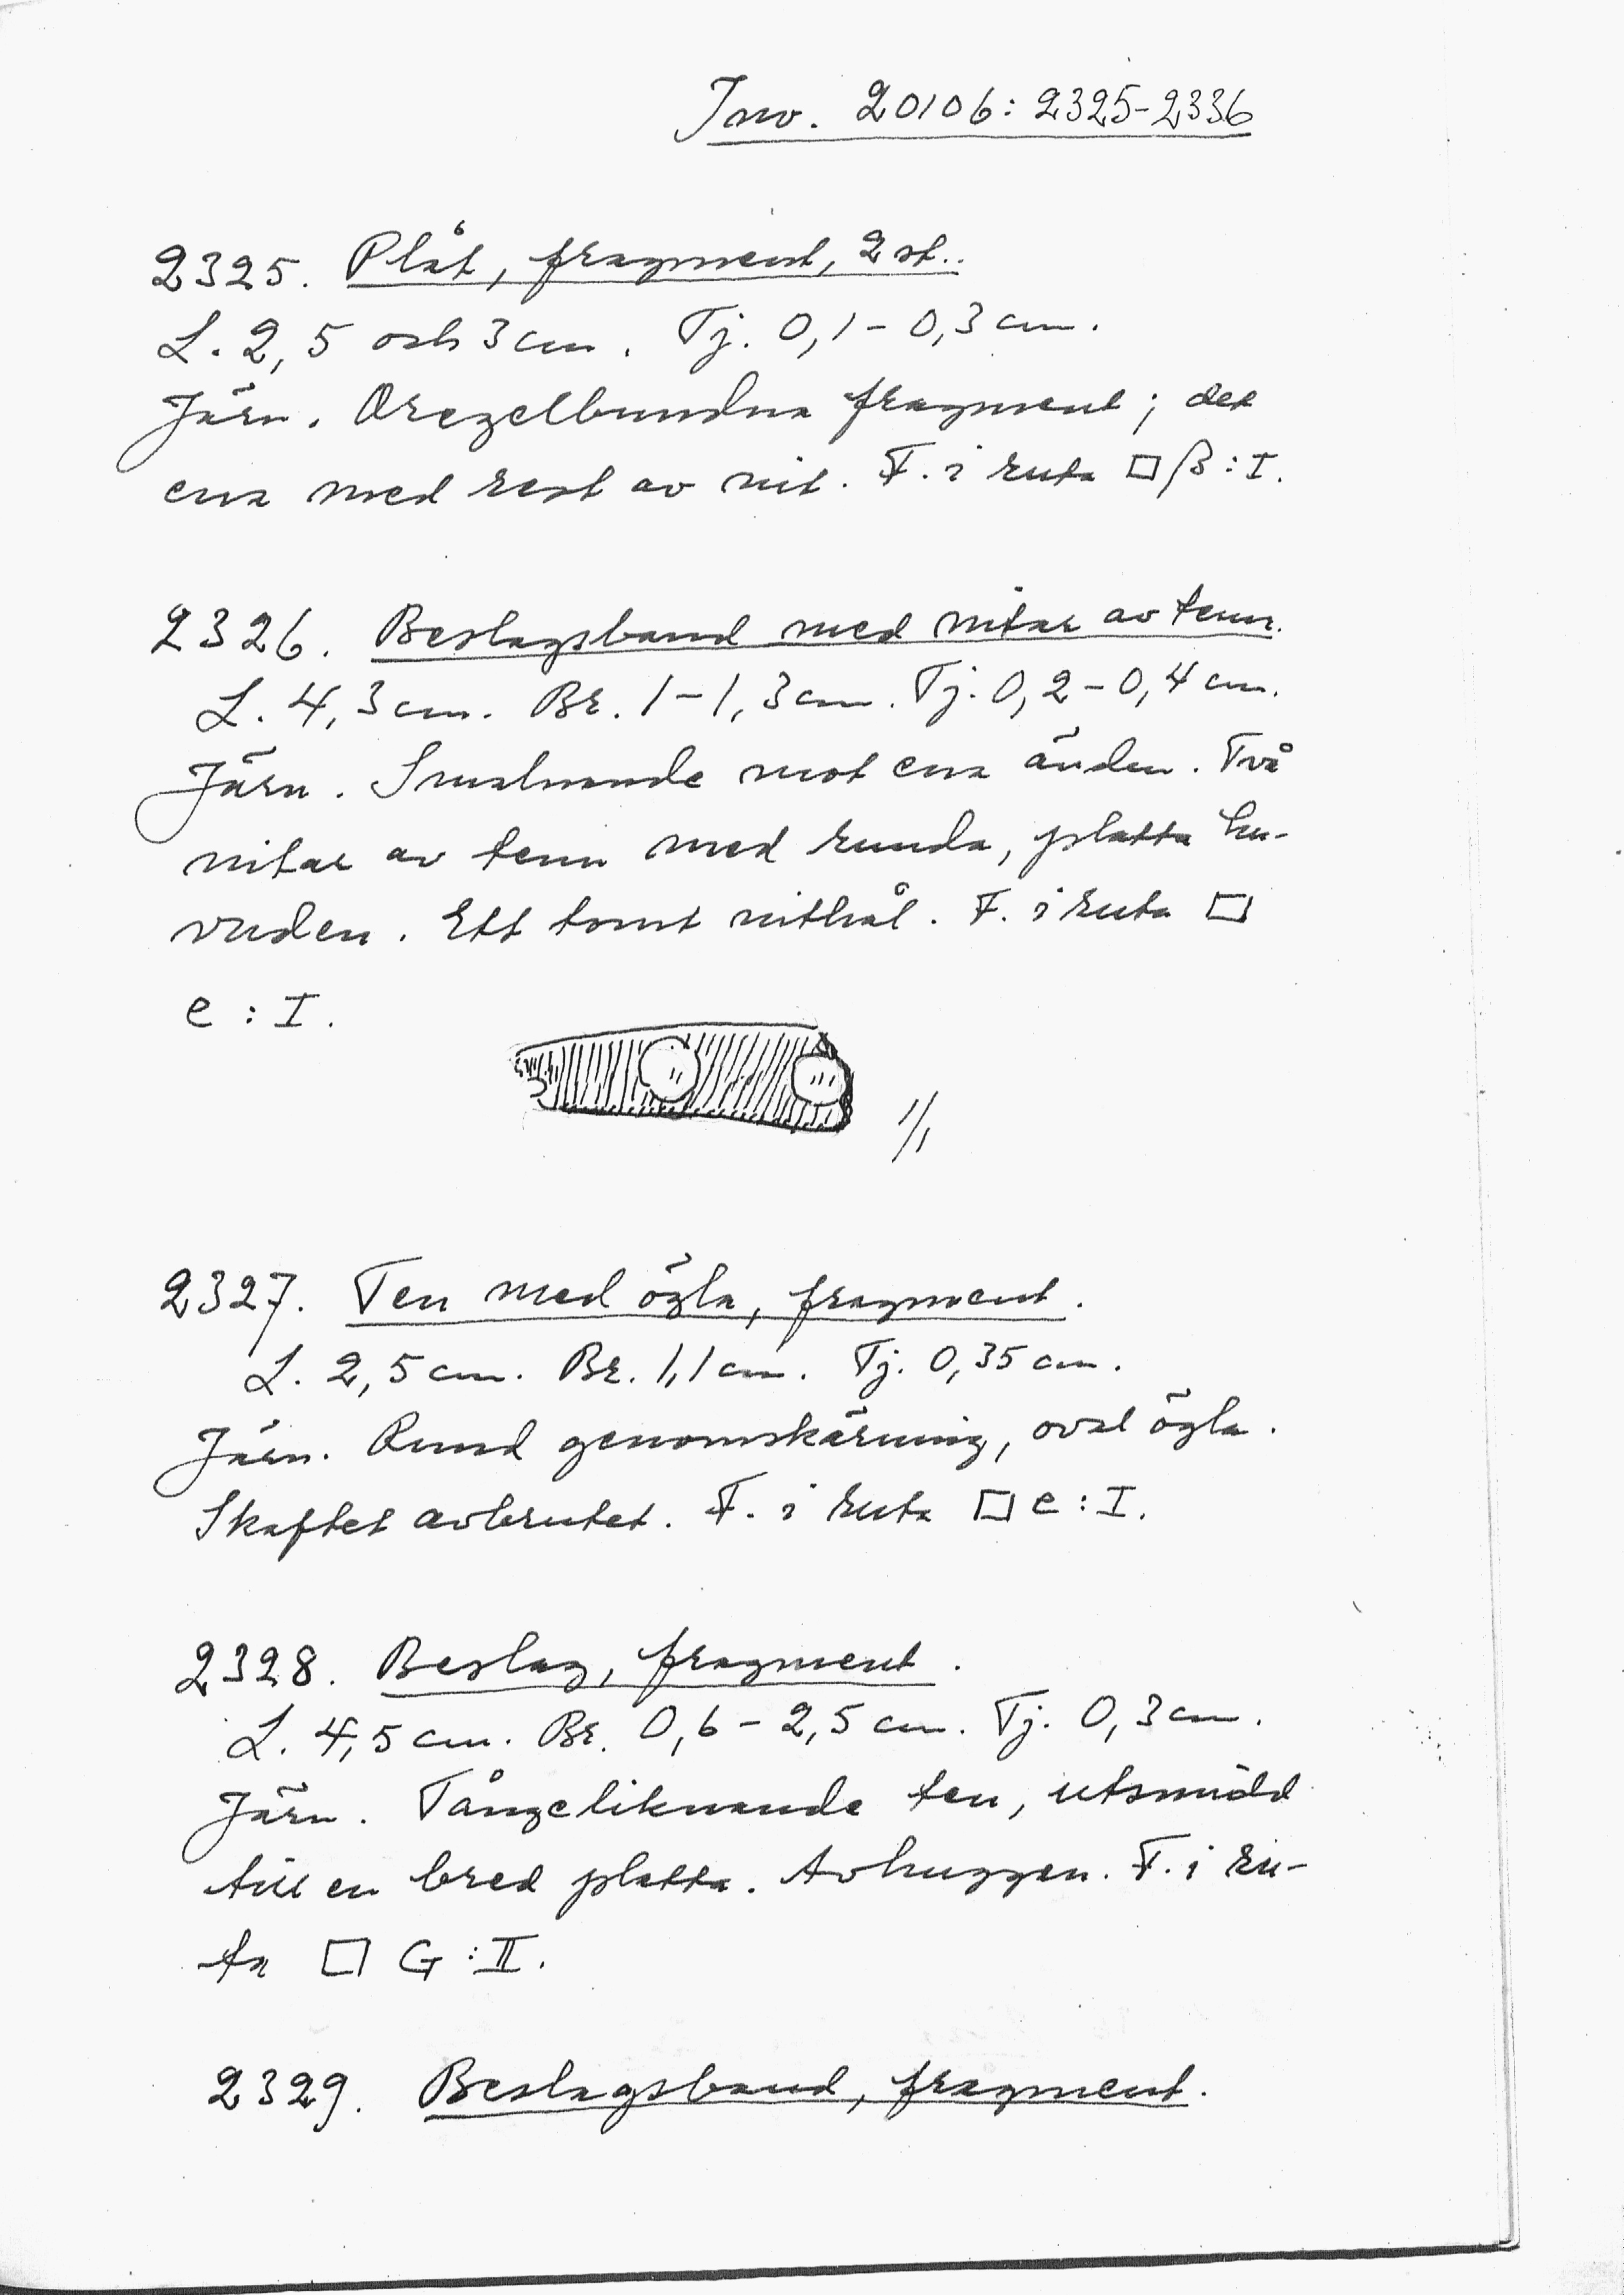 Inv. 20106: 2325-2336
2325. Plåt, fragment, 2 st..
L. 2,5 och 3 cm. Tj. 0,1-0,3 cm.
Järn. Oregelbundna fragment; det
ena med rest av nit. F. i ruta □ β : I.
2326. Beslagsband med nitar av tenn.
L. 4,3 cm. Br. 1-1,3 cm. Tj. 0,2-0,4 cm.
Järn. Smalnande mot ena änden. Två
nitar av tenn med runda, platta hu-
vuden. Ett tomt nithål. F. i ruta □
e : I.
1/1
2327. Ten med ögla, fragment.
L. 2,5 cm. Br. 1,1 cm. Tj. 0,35 cm.
Järn. Rund genomskärning, oval ögla.
Skaftet avbrutet. F. i ruta □ e : I.
2328. Beslag, fragment.
L. 4,5 cm. Br. 0,6-2,5 cm. Tj. 0,3 cm.
Järn. Tångeliknande ten, utsmidd
till en bred platta. Avhuggen. F. i ru-
ta □ G : II.
2329. Beslagsband, fragment.